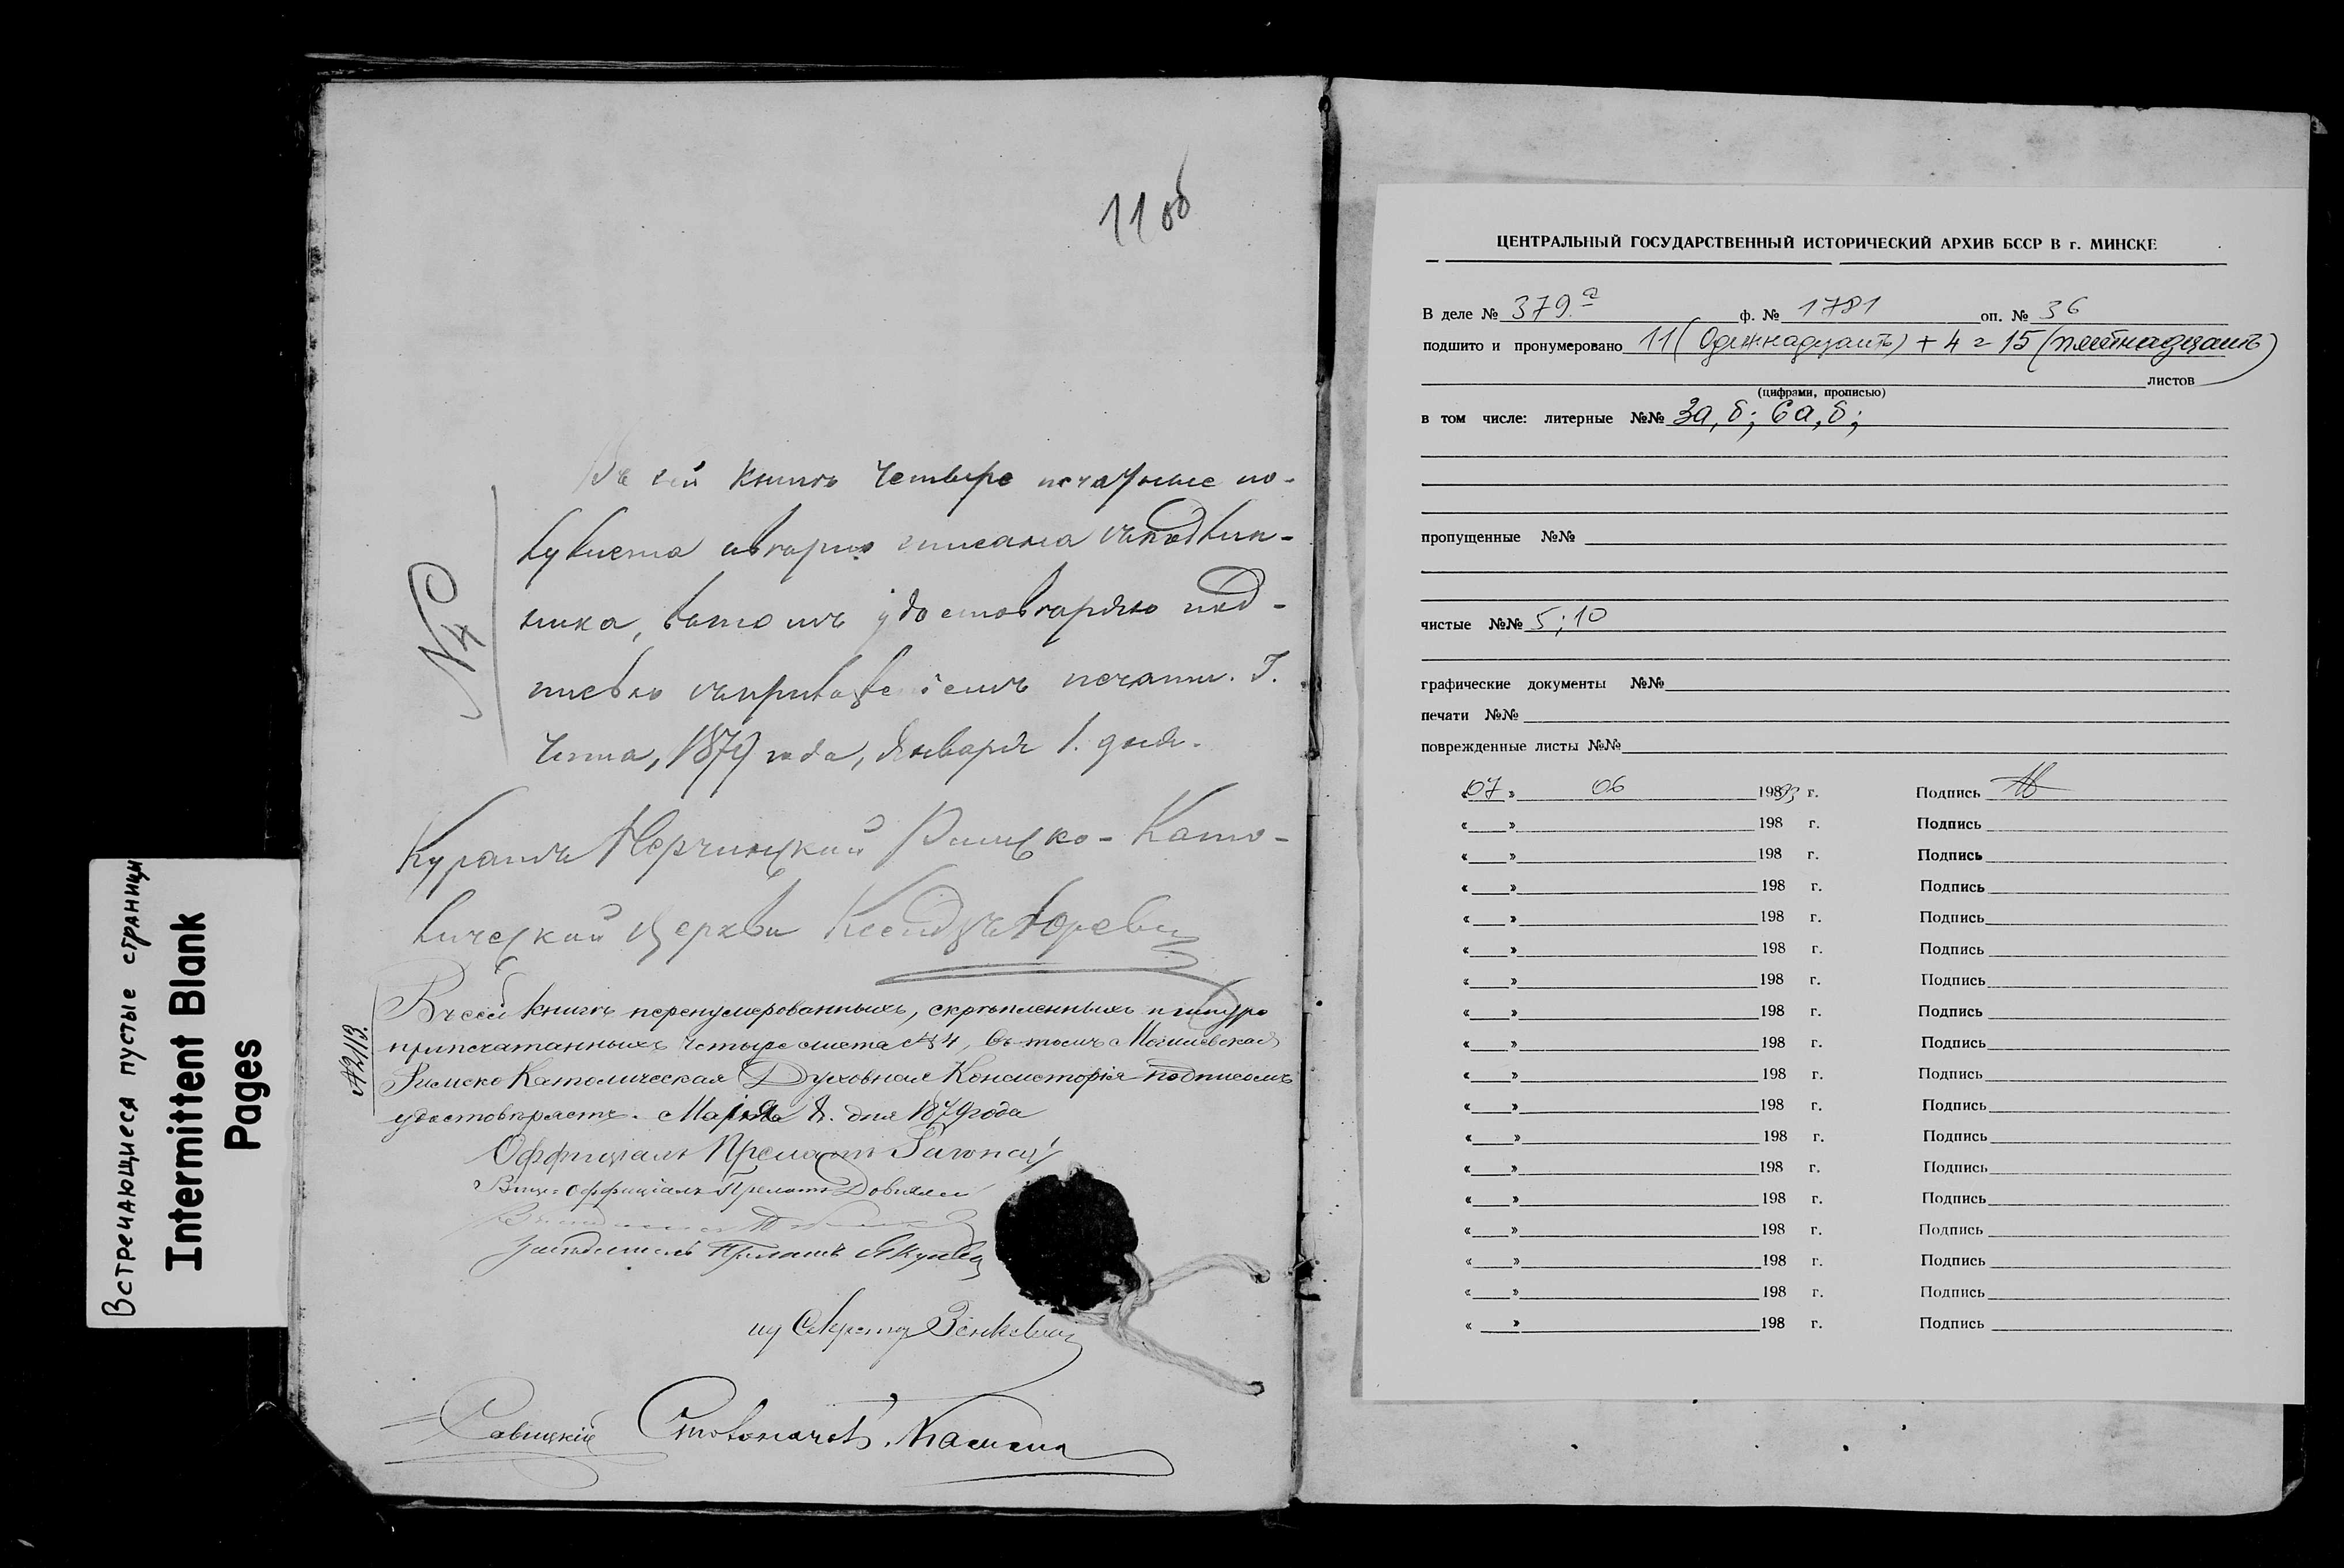 Встречающиеся пустые страницы
Intermittent Blank
Pages
11 об
Въ сей книгѣ четыре печатные по-
лулиста
ника, въ томъ удостовѣряю под-
писью печати. Г.
Чита, 1879 года, Января 1. дня.
№ 4
Куратъ Нерчинской Римско-Като-
лической церкви Ксендзъ
№ 2113.
Въ сей книгѣ перенумерованныхъ, скрѣпленныхъ и шнуро
припечатанныхъ четыре листа № 4, въ томъ Могилевская
Римско Католическая Духовная Консисторія подписомъ
удостовѣряетъ. дня 1879 года
Оффиціалъ Прелатъ
Вице-оффиціалъ Прелатъ
Засѣдатель Прелатъ
ид Секретаря Зенкевичъ
Савицкій Столоначал.
ЦЕНТРАЛЬНЫЙ ГОСУДАРСТВЕННЫЙ ИСТОРИЧЕСКИЙ АРХИВ БССР В г. МИНСКЕ
В деле № 379а ф. № 1781 оп. № 36
подшито и пронумеровано 11 (одиннадцать) + 4 = 15 (пятнадцать)
листов
(цифрами, прописью)
в том числе: литерные №№ 3а, б; 6а, б;
пропущенные №№
чистые №№ 5; 10
графические документы №№
печати №№
поврежденные листы №№
«07» 06 19893 г. Подпись
« » 198 г. Подпись
« » 198 г. Подпись
« » 198 г. Подпись
« » 198 г. Подпись
« » 198 г. Подпись
« » 198 г. Подпись
« » 198 г. Подпись
« » 198 г. Подпись
« » 198 г. Подпись
« » 198 г. Подпись
« » 198 г. Подпись
« » 198 г. Подпись
« » 198 г. Подпись
« » 198 г. Подпись
« » 198 г. Подпись
« » 198 г. Подпись
« » 198 г. Подпись